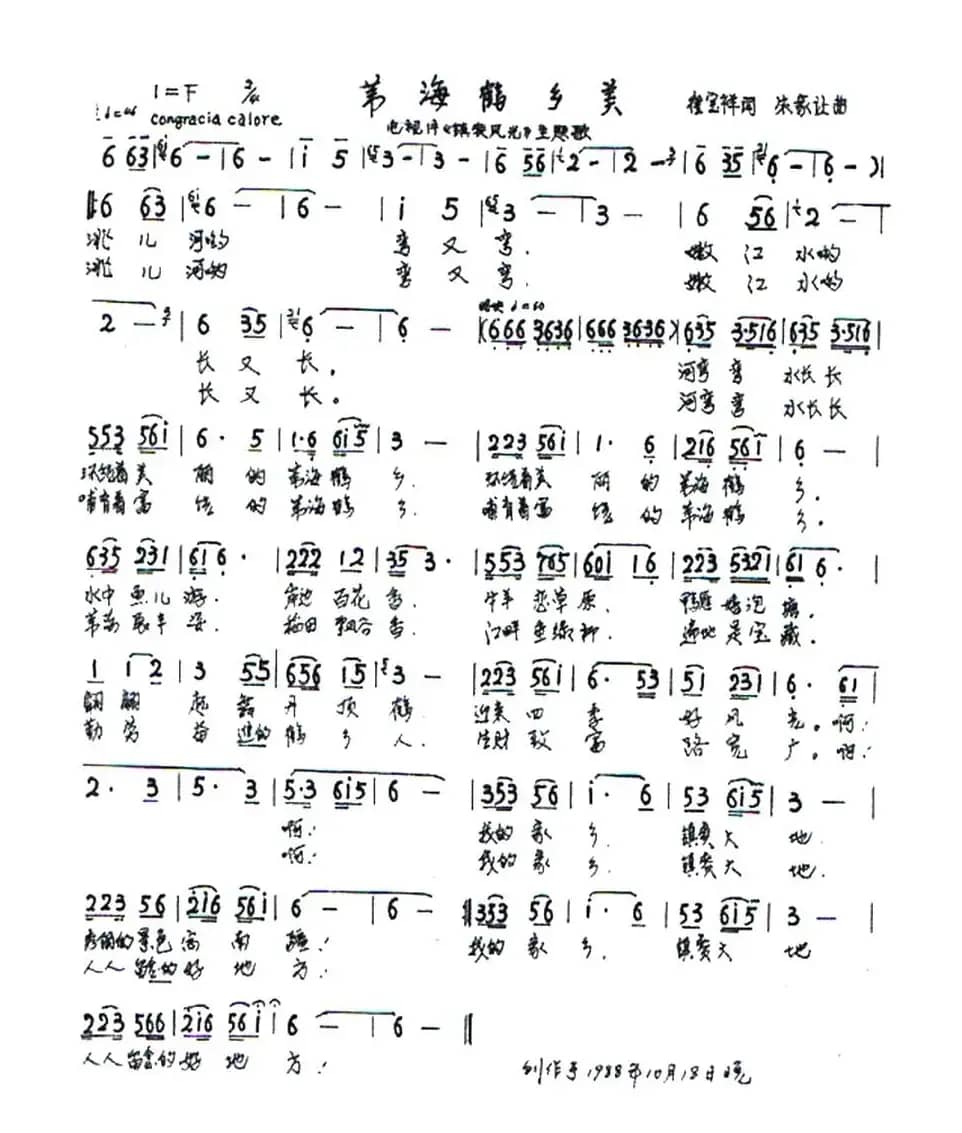 1=F 2/4 苇海鹤乡美 程宝祥词 朱家让曲
congracia calore 电视片《镇赉风光》主题歌
6 63 | 6 — | 6 — | i 5 | 3 — | 3 — | 6 56 | 2 — | 2 — | 6 35 | 6 — | 6 — ) |
6 63 | 6 — | 6 — | i 5 | 3 — | 3 — | 6 56 | 2 — |
洮儿河哟 弯又弯. 嫩江水哟
洮儿河哟 弯又弯. 嫩江水哟
2 — | 6 35 | 6 — | 6 — | (666 3636 | 666 3636) | 635 3·516 | 635 3·516 |
长又长。 河弯弯 水长长
长又长。 河弯弯 水长长
553 56i | 6· 5 | 1·6 6i5 | 3 — | 223 56i | 1· 6 | 216 561 | 6 — |
环绕着美丽的苇海鹤乡. 环绕着美丽的苇海鹤乡.
哺育着富饶的苇海鹤乡. 哺育着富饶的苇海鹤乡.
635 231 | 61 6· | 222 12 | 35 3· | 553 765 | 601 16 | 223 5321 | 61 6· |
水中鱼儿游. 岸边百花香. 牛羊恋草原.
苇荡 稻田飘谷香. 江畔鱼绿柳. 遍地是宝藏.
1 12 | 3 55 | 656 15 | 3 — | 223 56i | 6· 53 | 51 231 | 6· 61 |
翩翩起舞丹顶鹤. 迎来四季好风光。啊!
勤劳 进的鹤乡人. 生财致富路宽广。啊!
2· 3 | 5· 3 | 5·3 6i5 | 6 — | 353 56 | i· 6 | 53 6i5 | 3 — |
啊! 我的家乡 镇赉大地.
啊! 我的家乡. 镇赉大地.
223 56 | 216 561 | 6 — | 6 — | 353 56 | i· 6 | 53 6i5 | 3 — |
的景色 南疆! 我的家乡. 镇赉大地
人人留恋的好地方!
223 566 | 216 56i i | 6 — | 6 — ‖
人人留恋的好地方! 创作于1988年10月18日晚